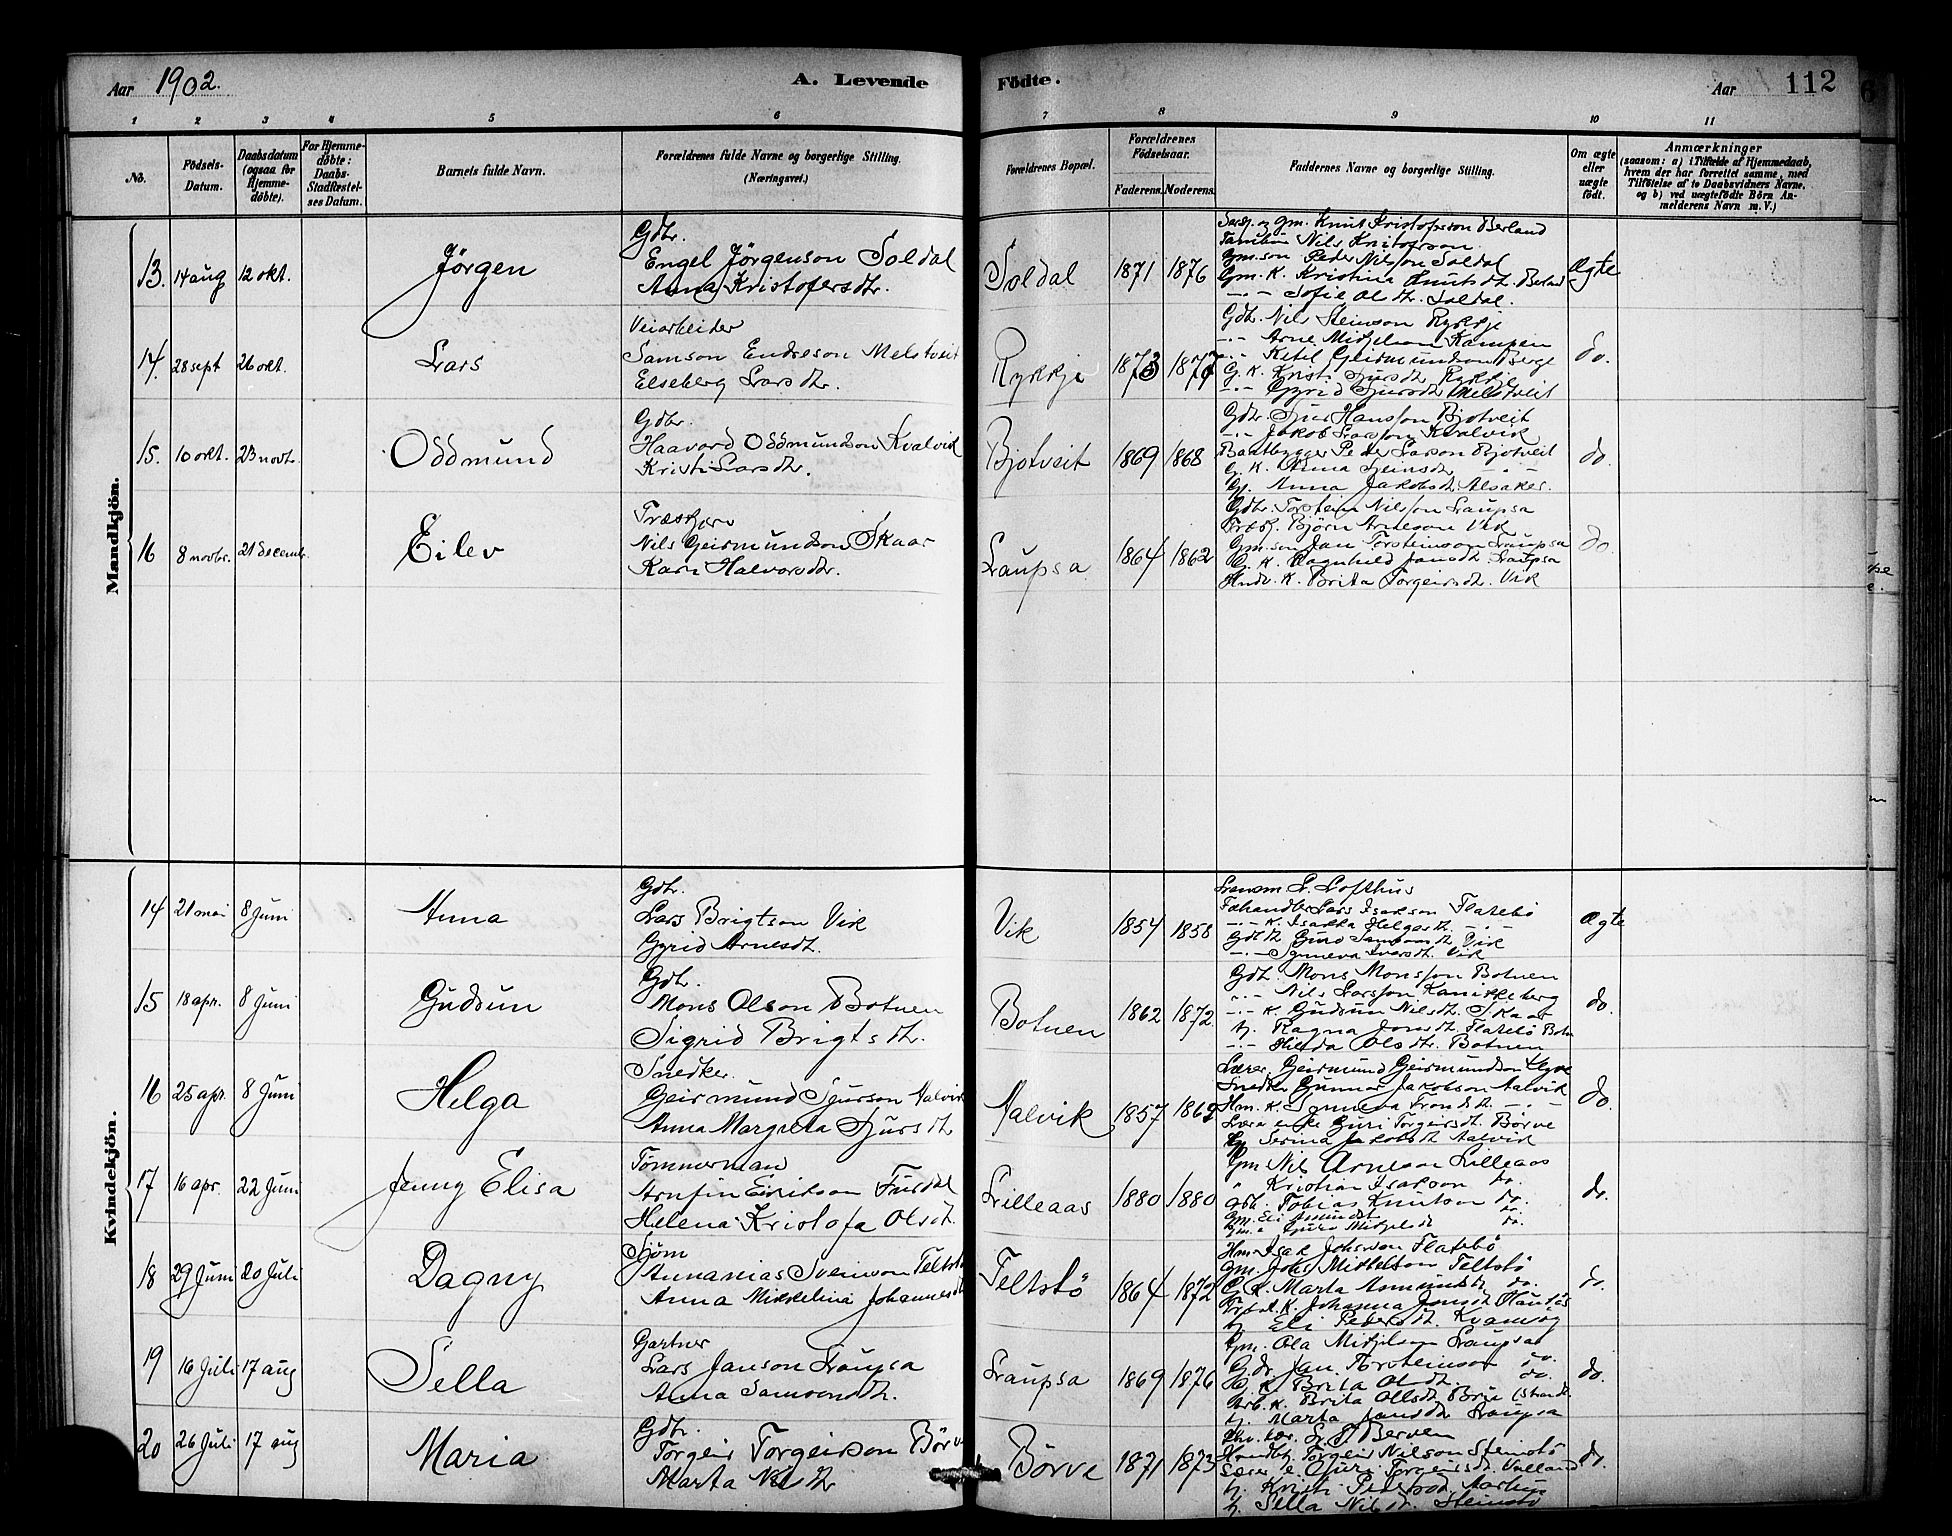 Aar 1902.
A. Levende Födte.
Aar 112
1 2 3 4 5 6 7 8 9 10 11
No.
Födsels-Datum.
Daabsdatum (ogsaa for Hjemme-döbte).
For Hjemme-döbte: Daabs-Stadfæstel-ses Datum.
Barnets fulde Navn.
Forældrenes fulde Navne og borgerlige Stilling. (Næringsvei.)
Forældrenes Bopæl.
Forældrenes Födselsaar.
Faderens. Moderens.
Faddernes Navne og borgerlige Stilling.
Om ægte eller uægte födt.
Anmærkninger
(saasom: a) i Tilfælde af Hjemmedaab, hvem der har forrettet samme, med Tilföielse af to Daabsvidners Navne. og b) ved uægtefödte Börn An-melderens Navn m. V.)
Mandkjön.
13. 14 aug 12 okt. Jörgen
Gdbr.
Engel Jörgenson Soldal
Anna Kristofersdtr.
Soldal 1871 1876
Gm. Knut Kristoferson Berland
Nils Kristoferson
Gm.son Peder Nilsson Soldal
Gm. K. Kristina Knutsdt. Berland
-"- Sofie Olsdtr. Soldal.
Ægte
14. 28 sept 26 okt. Lars
Veiarbeider
Samson Endreson Melstveit
Elseberg Larsdtr.
Rykkje 1873 1877
Gdbr. Nils Steinson Rykkje
-"- Arne Midtelson Kampen
-"- Ketil Geirmundson Berge
G. K. Kristi Sjursdtr Rykkje
-"- Gyrid Sjursdtr Melstveit
do.
15. 10 okt. 23 novbr. Oddmund
Gdbr.
Haavard Oddmundson Kvalvik
Kristi Larsdtr.
Bjotveit 1869 1868
Gdbr. Sjur Hansson Bjotveit
-"- Jakob Larsson Kvalvik
Baatbygger Peder Larson Bjotveit
G. K. Anna Steinsdtr -"-
Gp. Anna Jakobsdt. Alsaker.
do.
16 8 novbr. 21 decembr. Eilev
Træskjær
Nils Geirmundson Skaar
Kari Halvorsdtr.
Laupsa 1864 1862
Gdbr. Torstein Nilsson Laupsa
Træsk. Björn Arneson Vik
Gm.son Jan Torsteinson Laupsa
G. K. Ragnhild Jansdt. Laupsa
Hndv. K. Brita Torgeirsdt. Vik
do
Kvindekjön.
14 21 mai 8 Juni Anna
Gdbr.
Lars Brigtson Vik
Gyrid Arnesdt.
Vik 1854 1858
Lensm. L. Lofthus
Fæhandler Lars Isakson Flatebö
-"- K. Isakka Helgesdt. -"-
Guro Samsonsdt. Vik
-"- Synneva Ivarsdt. Vik
ægte
15 18 apr. 8 Juni Gudrun
Gdb.
Mons Olson Botnen
Sigrid Brigtsdtr.
Botnen 1862 1872
Gdb. Mons Monsson Botnen
-"- Nils Larsson Kanikkeberg
-"- K. Gudrun Nilsdt. Skaar
Gp. Ragna Jonsdt. Flatebö Botn
-"- Hilda Olsdtr. Botnen
do.
16 25 apr. 8 Juni Helga
Snedker.
Geirmund Sjurson Aalvik
Anna Margreta Sjursdt
Aalvik 1857 1862
Lærer Geirmund Geirmundson
Snedker Gunnar Jakobson Aalvik
Hm. K. Synneva Trondsdt. -"-
Lærer enke Guri Torgeirsdt. Börve
Gp Serina Jakobsdt Aalvik
do.
17 16 apr. 22 Juni Jenny Elisa
Tömmerman
Arnfin Erikson Fusdal
Helena Kristofa Olsdt.
Lilleaas 1880 1880
Gm Nils Arneson Lilleaas
" Kristian Isakson do.
Gdb. Tobias Knutson do.
Gm. Eli Asmundsdt do.
Guro Midtelsdt do.
do.
18 29 Juni 20 Juli Dagny
Sjöm
Annanias Sveinson Teltstö
Anna Mikkelina Johannesdt
Teltstö 1864 1872
Hm. Isak Johsson Flatebö
Gm. Johs Mikkelson Teltstö
G. K. Marta Asmundsdt. do.
K. Johanna Jonsdt
Eli Pedersdt. Kvamsög
do.
19 16 Juli 17 aug Sella
Gartner
Lars Janson Laupsa
Anna Samsonsdtr.
Laupsa 1869 1876
Gm. Ola Midtelson Laupsa
Gdbr. Jan Torsteinson do.
G. K. Brita Olsdt. do.
K. Brita Olsdt Börve
Marta Jansdtr Laupsa
do.
20 26 Juli 17 aug Maria
Gdbr.
Torgeir Torgeirson Börve
Marta Nilsdtr
Börve 1871 1873
L. Berven
Handelsb. Torgeir Nilsson Steinstö
Lærer e. Guri Torgeirsdt.
Kristi Pedersdt.
Sella Nilsdt. Steinstö
do.